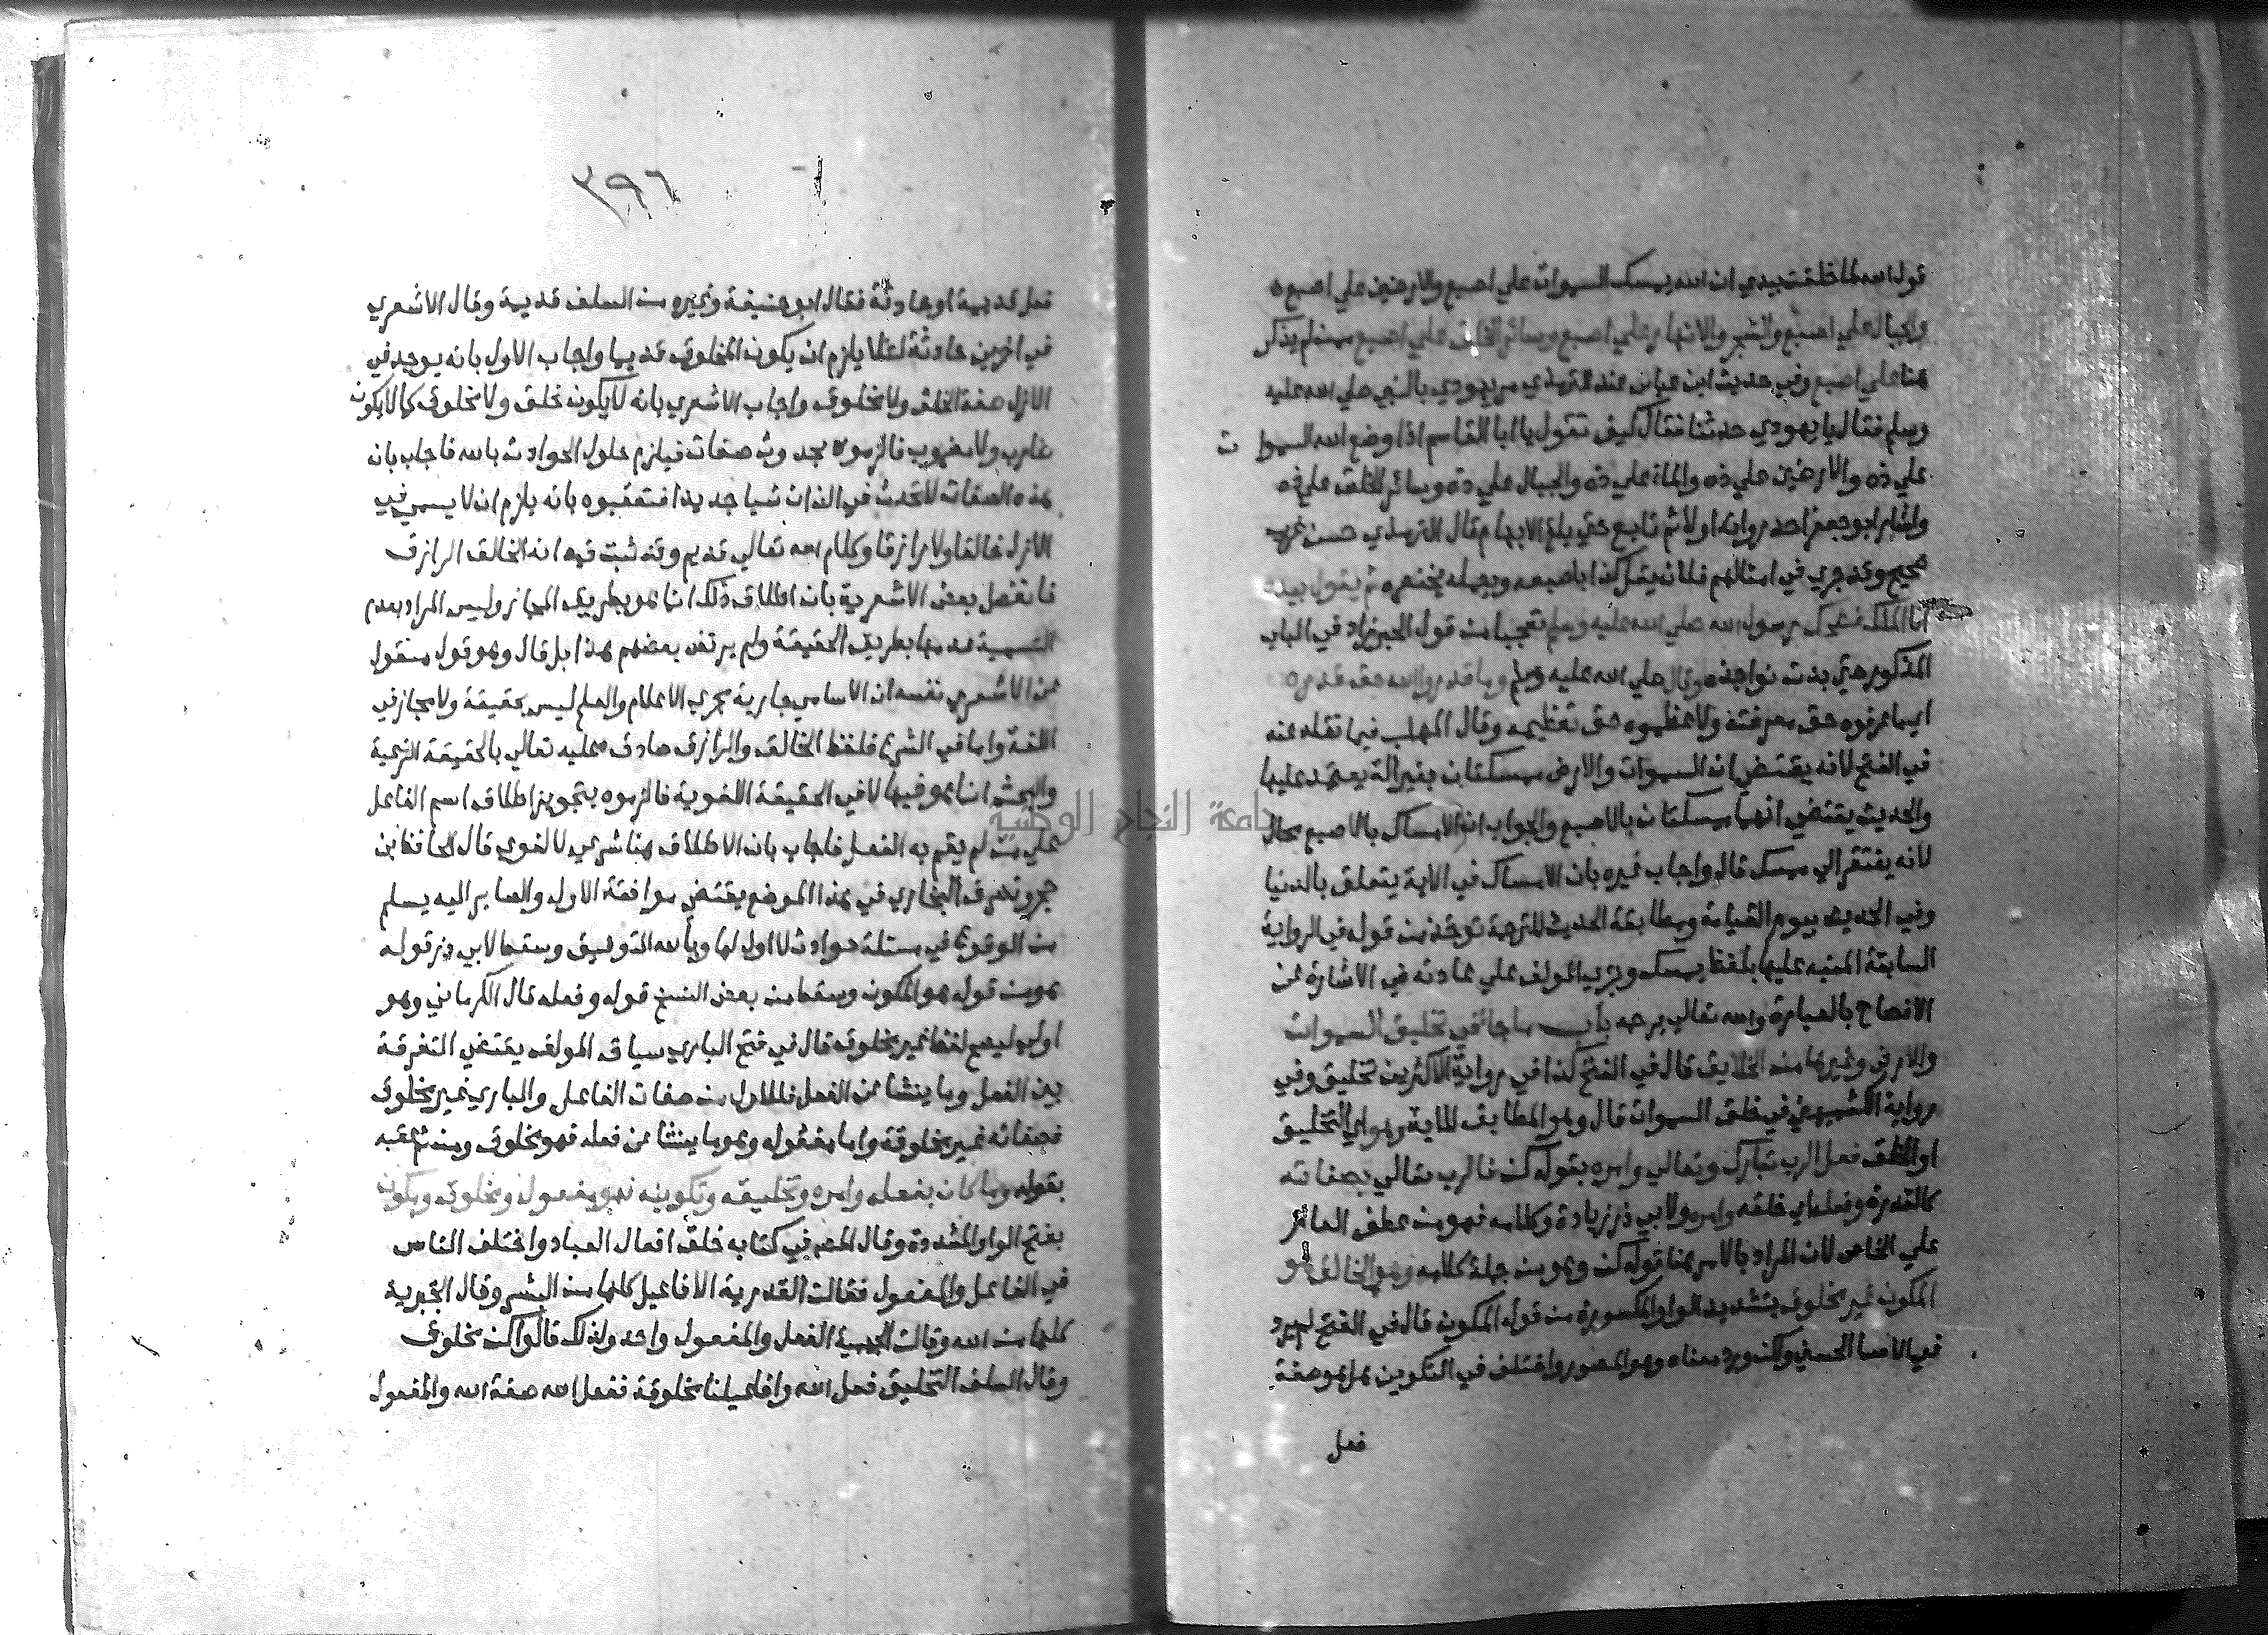 قول الله لما خلقت بيدي ان الله يمسك السموات علي اصبع والارضين علي اصبع
والجبال علي اصبع والشجر والانهار علي اصبع وسائر الخلق علي اصبع ممن لم يذكر
هنا علي اصبع وفي حديث ابن عباس عند الترمذي مر يهودي بالنبي صلي الله عليه
وسلم فقال يا يهودي حدثنا فقال كيف تقول يا ابا القاسم اذا وضع الله السموات
علي ذه والارضين علي ذه والماء علي ذه والجبال علي ذه وسائر الخلق علي ذه
واشار ابو جعفر احد رواته اولا ثم تابع حتي بلغ الابهام قال الترمذي حسن غريب
صحيح وقد جري في امثالهم فلان يقل كذا باصبعه ويعمله بخنصره ثم يقول بيده
انا الملك فضحك رسول الله صلي الله عليه وسلم تعجبا من قول الحبر زاد في الباب
المذكور حتي بدت نواجذه وقال صلي الله عليه وسلم وما قدروا الله حق قدره
اي ما عرفوه حق معرفته ولا عظموه حق تعظيمه وقال المهلب فيما نقله عنه
في الفتح لانه يقتضي ان السموات والارض ممسكتان بغير الة يعتمد عليها
والحديث يقتضي انهما ممسكتان بالاصبع والجواب ان الامساك بالاصبع محال
لانه يفتقر الي ممسك قال واجاب غيره بان الامساك في الاية يتعلق بالدنيا
وفي الحديث بيوم القيامة ومطابقة الحديث للترجمة توخذ من قوله في الرواية
السابقة المنبه عليها بلفظ يمسك وجري المولف علي عادته في الاشارة عن
الافصاح بالعبارة والله تعالي يرحمه باب ما جا في تخليق السموات
والارض وغيرها من الخلايق قال في الفتح كذا في رواية الاكثرين تخليق وفي
رواية الكشميهني في خلق السموات قال وهو المطابق للاية وهو اي التخليق
او الخلق فعل الرب تبارك وتعالي وامره بقوله كن فالرب تعالي بصفاته
كالقدرة وفعله اي خلقه وامره ولابي ذر زيادة وكلامه فهو من عطف العام
علي الخاص لان المراد بالامر هنا قوله كن وهو من جملة كلامه وهو الخالق هو
المكون غير مخلوق بتشديد الواو المكسورة من قوله المكون قال في الفتح لم يرد
في الاسما الحسني ولكن ورد معناه وهو المصور واختلف في التكوين هل هو صفة
فعل
٣٩٦
فعل قديمة او حادثة فقال ابو حنيفة وغيره من السلف قديمة وقال الاشعري
في اخرين حادثة لئلا يلزم ان يكون المخلوق قديما واجاب الاول بانه يوجد في
الازل صفة الخلق ولا مخلوق واجاب الاشعري بانه لا يكون خلق ولا مخلوق كما لا يكون
ضارب ولا مضروب فالزموه بحدوث صفات فيلزم حلول الحوادث بالله فاجاب بان
هذه الصفات لا تحدث في الذات شيا جديدا فتعقبوه بانه يلزم ان لا يسمي في
الازل خالقا ولا رازقا وكلام الله تعالي قديم وقد ثبت فيه انه الخالق الرازق
فانفصل بعض الاشعرية بان اطلاق ذلك انما هو بطريق المجاز وليس المراد بعدم
التسمية عدمها بطريق الحقيقة ولم يرتض بعضهم هذا بل قال وهو قول منقول
عن الاشعري نفسه ان الاسامي جارية مجري الاعلام والعلم ليس بحقيقة ولا مجاز في
اللغة واما في الشرع فلفظ الخالق والرازق صادق عليه تعالي بالحقيقة الشرعية
والبحث انما هو فيها لا في الحقيقة اللغوية فالزموه بتجويز اطلاق اسم الفاعل
علي من لم يقم به الفعل فاجاب بان الاطلاق هنا شرعي لا لغوي قال الحافظ ابن
حجر وتصرف البخاري في هذا الموضع يقتضي موافقة الاول والصاير اليه يسلم
من الوقوع في مسئلة حوادث لا اول لها وبالله التوفيق وسقط لابي ذر قوله
هو من قوله هو المكون وسقط من بعض النسخ قوله وفعله قال الكرماني وهو
اولي ليصح لفظ غير مخلوق قال في فتح الباري سياق المولف يقتضي التفرقة
بين الفعل وما ينشا عن الفعل فالاول من صفات الفاعل والباري غير مخلوق
فصفاته غير مخلوقة واما مفعوله وهو ما ينشا عن فعله فهو مخلوق ومن ثم عقبه
بقوله وما كان بفعله وامره وتخليقه وتكوينه فهو مفعول ومخلوق ومكون
بفتح الواو المشددة وقال المص في كتابه خلق افعال العباد واختلف الناس
في الفاعل والمفعول فقالت القدرية الافاعيل كلها من البشر وقال الجبرية
كلها من الله وقالت الجهمية الفعل والمفعول واحد ولذلك قالوا كن مخلوق
وقال السلف التخليق فعل الله وافاعيلنا مخلوقة ففعل الله صفة الله والمفعول
جامعة النجاح الوطنية